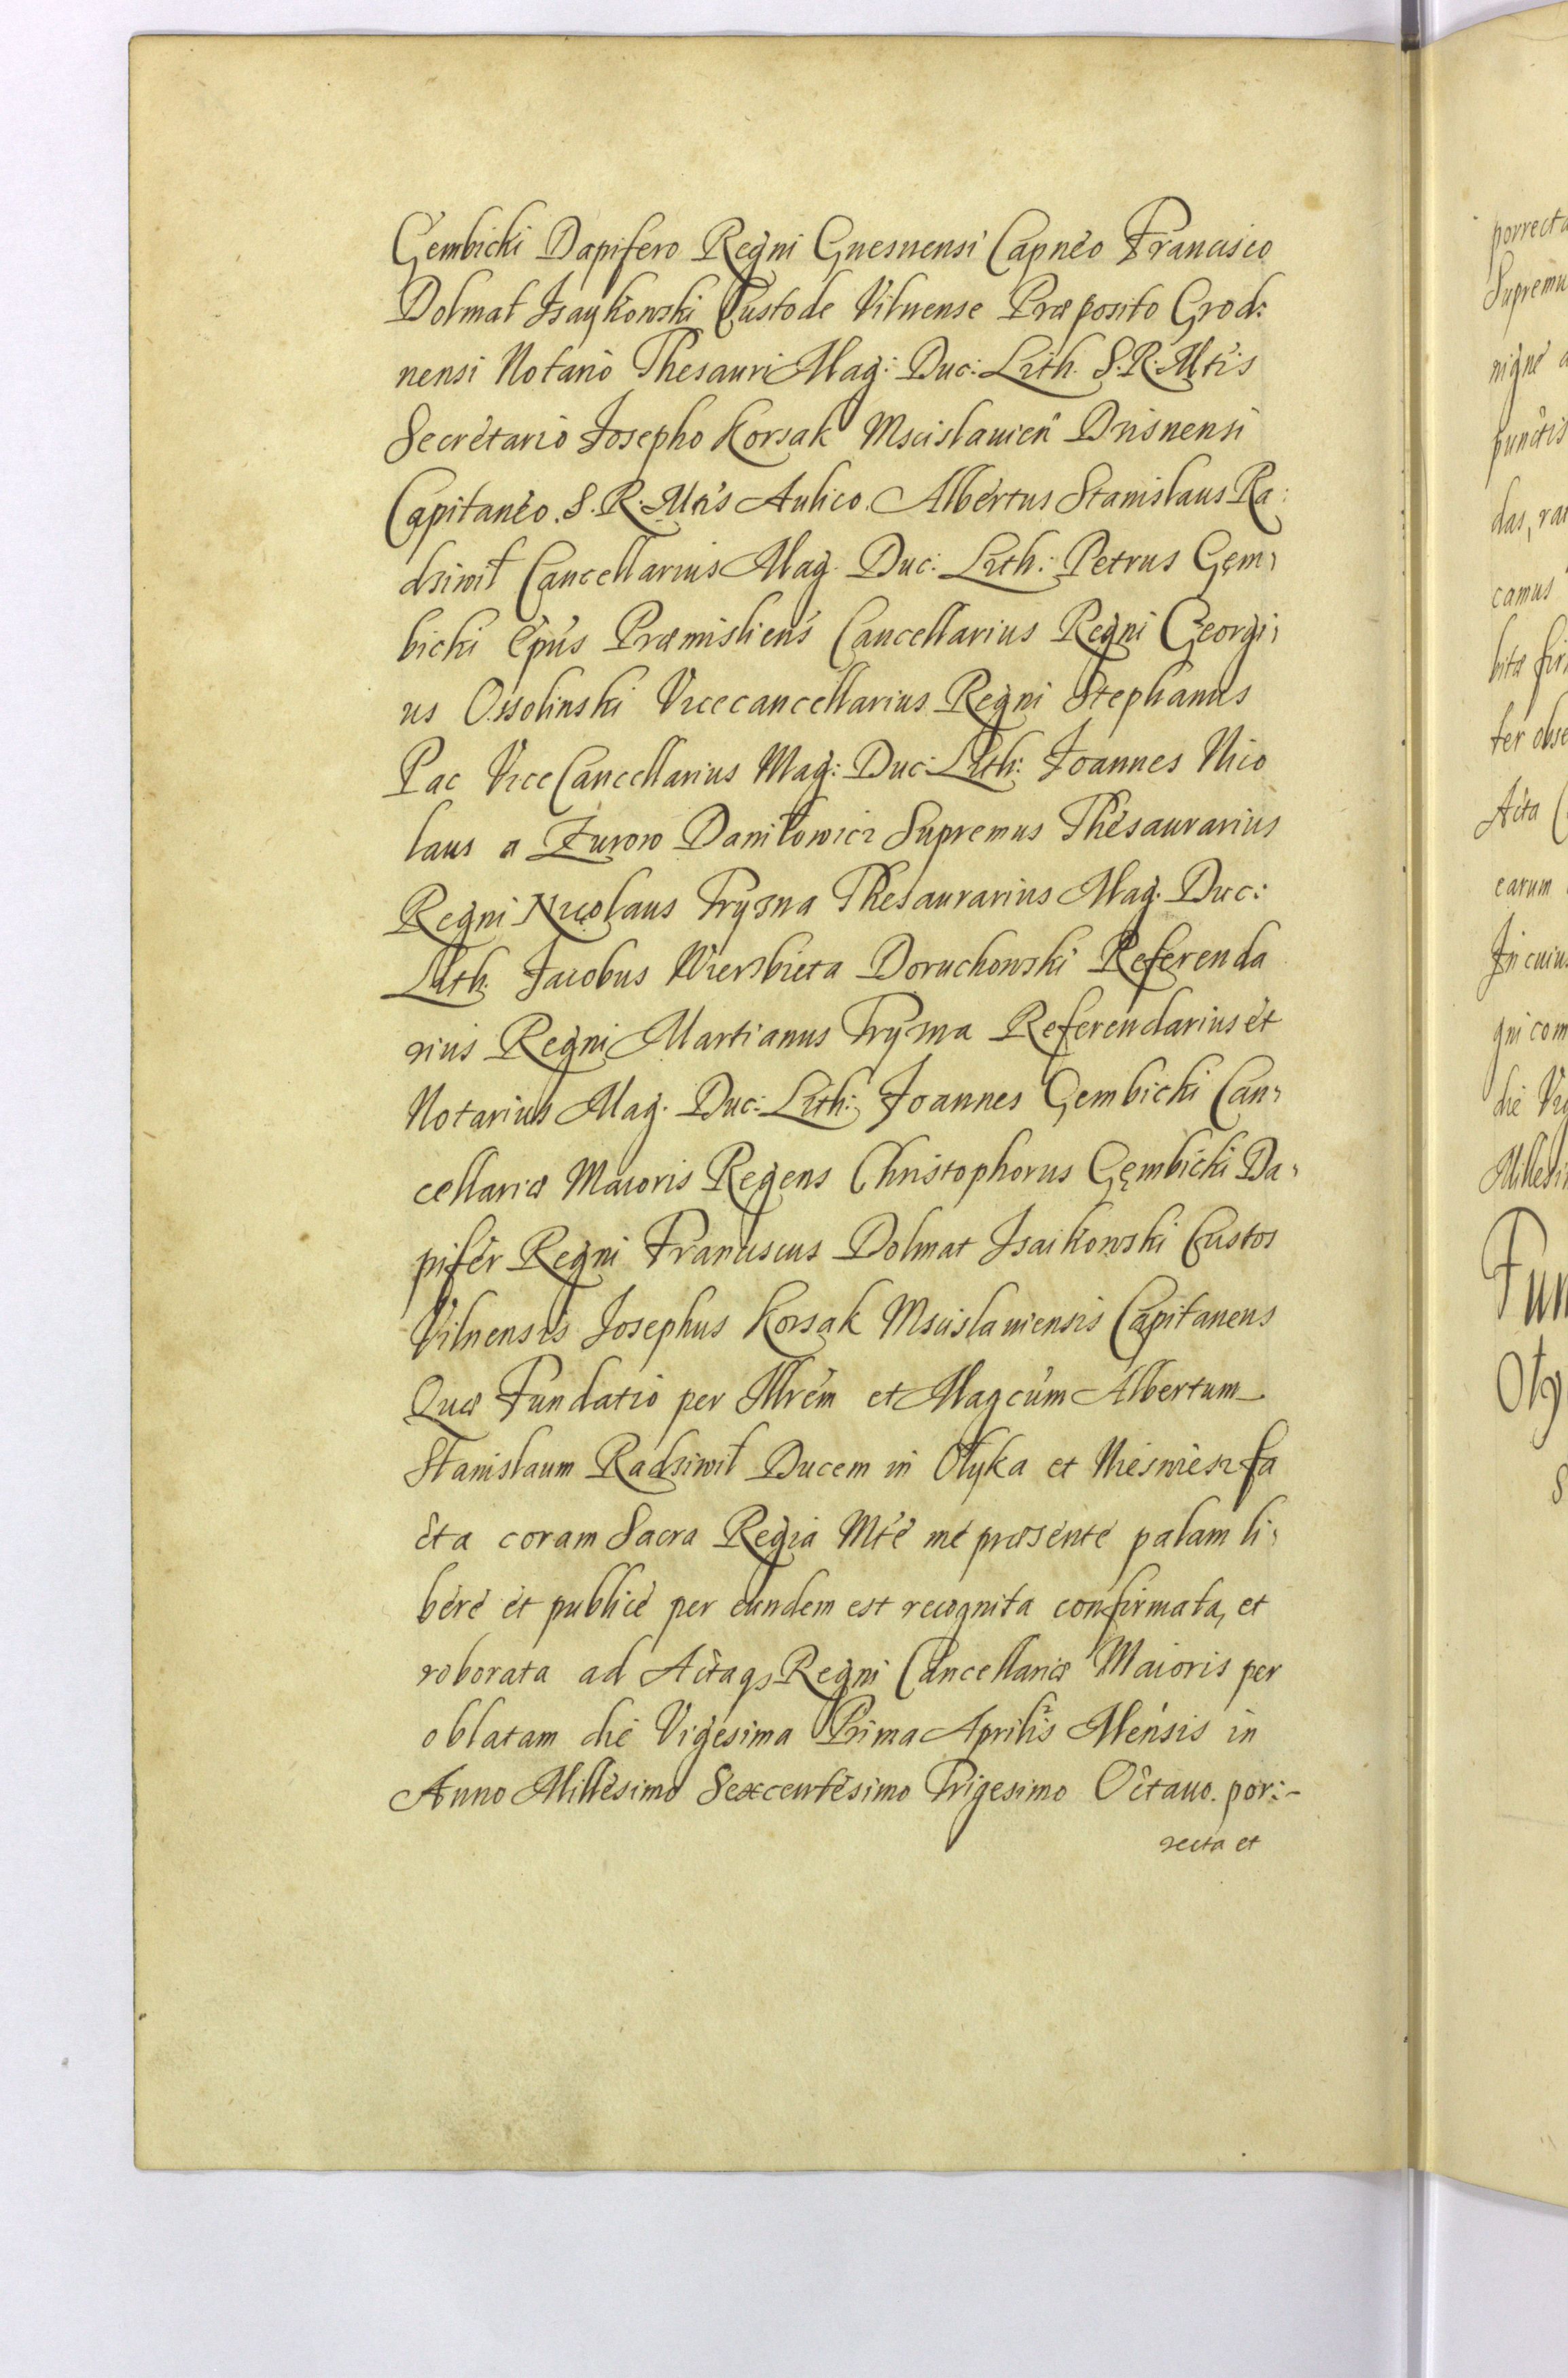 Gembicki Dapifero Regni Gnesnensi Capneo Francisco
Dolmat Isaykowski Custode Vilnense Præposito Grod:
nensi Notario Thesauri Mag: Duc: Lith. S. R. Mtis
Secretario Josepho Korsak Mscislauien Drisnensi
Capitaneo. S. R. Mtis Aulico. Albertus Stanislaus Ra:
dziwił Cancellarius Mag. Duc: Lith: Petrus Gęm,
bicki Epus Præmisliens Cancellarius Regni Georgi,
us Ossolinski Vicecancellarius Regni Stephanus
Pac Vice Cancellarius Mag: Duc: Lith: Joannes Nico
laus a Zurow Daniłowicz Supremus Thesaurarius
Regni Nicolaus Tryzna Thesaurarius Mag. Duc:
Lith. Jacobus Wierzbieta Doruchowski Referenda
rius Regni Martianus Tryzna Referendarius et
Notarius Mag. Duc: Lith: Joannes Gembicki Can,
cellariæ Maioris Regens Christophorus Gęmbicki Da,
pifer Regni Franciscus Dolmat Isaikowski Custos
Vilnensis Josephus Korsak Mscislauiensis Capitaneus
Quæ Fundatio per Illrem et Magcum Albertum
Stanislaum Radziwił Ducem in Ołyka et Nieswiesz fa
cta coram Sacra Regia Mte me præsente palam li,
bere et publice per eundem est recognita confirmata, et
roborata ad Actaqz Regni Cancellariæ Maioris per
oblatam die Vigesima Prima Aprilis Mensis in
Anno Millesimo Sexcentesimo Trigesimo Octauo. por:-
recta et
porrecta
Supremu
nigne a
punctis
das, rat
camus
bitæ fir
ter obse
Acta (
earum
In cuius
gni com
die Vig
Millesi
Fun
Oły
S